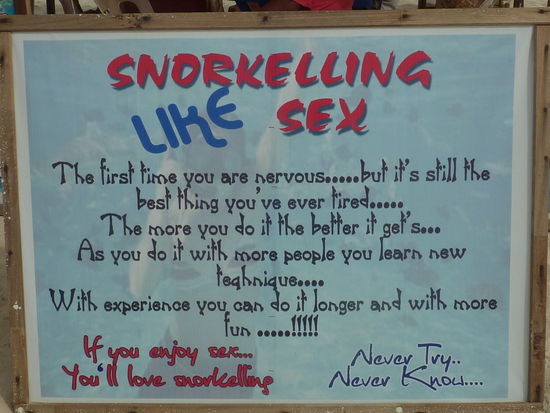 SNORKELLING
LIKE SEX
The first time you are nervous.....but it's still the
best thing you've ever tired.....
The more you do it the better it get's...
As you do it with more people you learn new
teqhnique....
With experience you can do it longer and with more
fun .....!!!!!
If you enjoy sex...
You'll love snorkelling
Never Try..
Never Know....